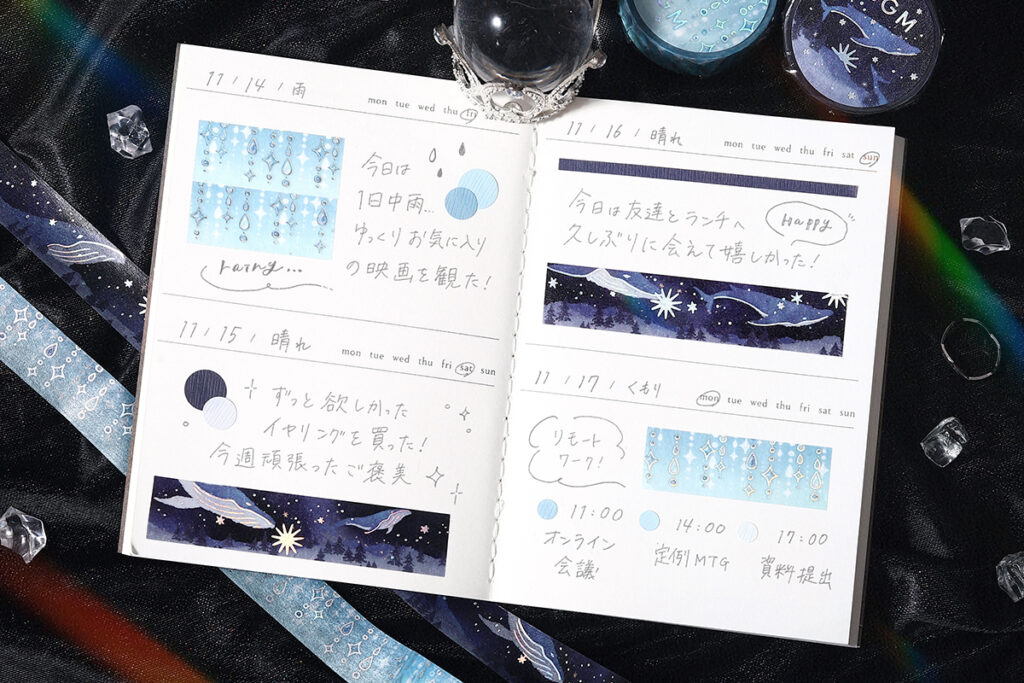 11 / 14 / 雨
mon tue wed thu fri
今日は
1日中雨…
ゆっくりお気に入り
の映画を観た!
rainy...
11 / 15 / 晴れ
mon tue wed thu fri sat sun
ずっと欲しかった
イヤリングを買った!
今週頑張ったご褒美
11 / 16 / 晴れ
mon tue wed thu fri sat sun
今日は友達とランチへ
久しぶりに会えて嬉しかった!
Happy
11 / 17 / くもり
mon tue wed thu fri sat sun
リモート
ワーク!
11:00
オンライン
会議
14:00
定例MTG
17:00
資料提出
M
GM